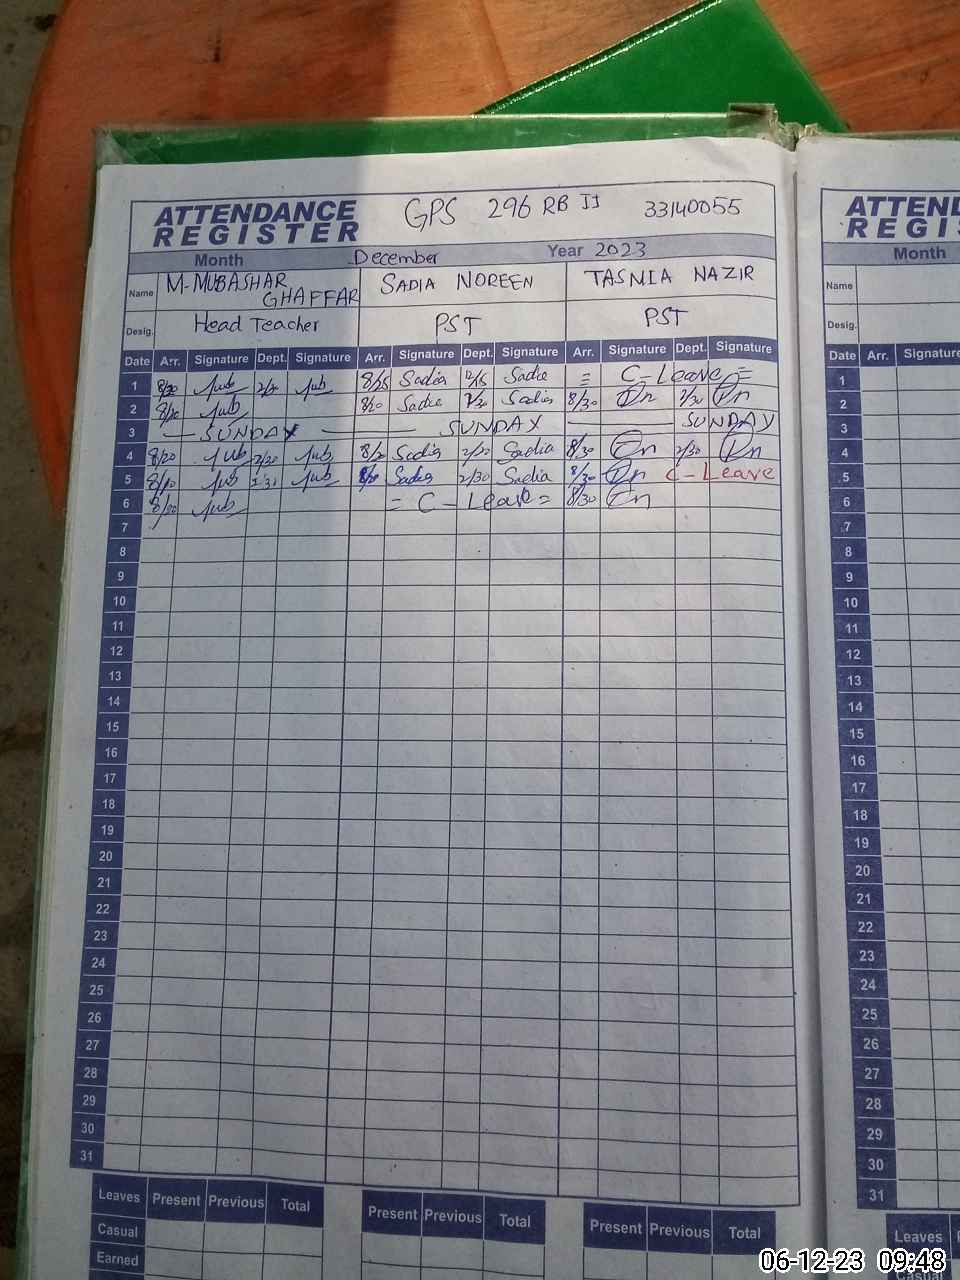 ATTENDANCE REGISTER GPS 296 RB II 33140055
Month December Year 2023
Name M-MUBASHAR GHAFFAR SADIA NOREEN TASMIA NAZIR
Desig. Head Teacher PST PST
Date Arr. Signature Dept. Signature Arr. Signature Dept. Signature Arr. Signature Dept. Signature
1 8/20 Mub Mub 8/25 Sadia Sadia = C-Leave =
2 Mub 8/20 Sadia Sadia 8/30 2/30
3 SUNDAY SUNDAY SUNDAY
4 8/20 Mub 2/30 Mub Sadia 2/30 Sadia 8/30 2/30
5 Mub Mub Sadia 2/30 Sadia 8/30 C-Leave
6 8/20 Mub = C-Leave = 8/30
7
8
9
10
11
12
13
14
15
16
17
18
19
20
21
22
23
24
25
26
27
28
29
30
31
Leaves Present Previous Total Present Previous Total Present Previous Total
Casual
Earned
ATTEND
REGIS
Month
Name
Desig.
Date Arr. Signature
1
2
3
4
5
6
7
8
9
10
11
12
13
14
15
16
17
18
19
20
21
22
23
24
25
26
27
28
29
30
31
Leaves
Casual
06-12-23 09:48